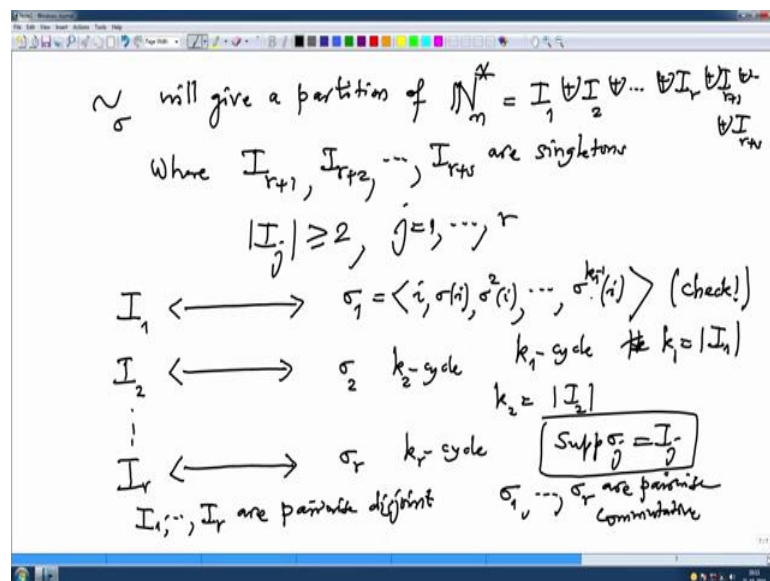 Note1 - Windows Journal
File Edit View Insert Actions Tools Help
Page Width
~_σ will give a partition of ℕ_n^* = I_1 ⊎ I_2 ⊎ ... ⊎ I_r ⊎ I_{r+1} ⊎ ...
⊎ I_{r+s}
Where I_{r+1}, I_{r+2}, ..., I_{r+s} are singletons
|I_j| ≥ 2, j=1, ..., r
I_1 <——> σ_1 = <i, σ(i), σ^2(i), ..., σ^{k_1-1}(i)> (check!)
k_1-cycle k_1 = |I_1|
I_2 <——> σ_2 k_2-cycle
k_2 = |I_2|
⋮
I_r <——> σ_r k_r-cycle Supp σ_j = I_j
I_1, ..., I_r are pairwise disjoint σ_1, ..., σ_r are pairwise
commutative
7/7